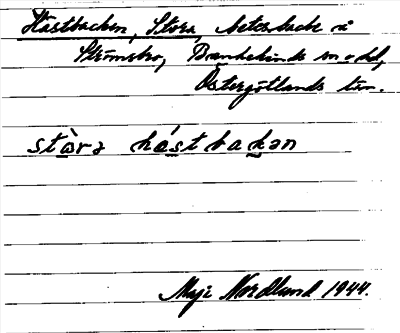 Hästbacken, Stora, betesbacke å
Strömsbro, Brunnebinds sn o hd,
Östergötlands län.
stòra hästbakən
Maje Nordlund 1944.